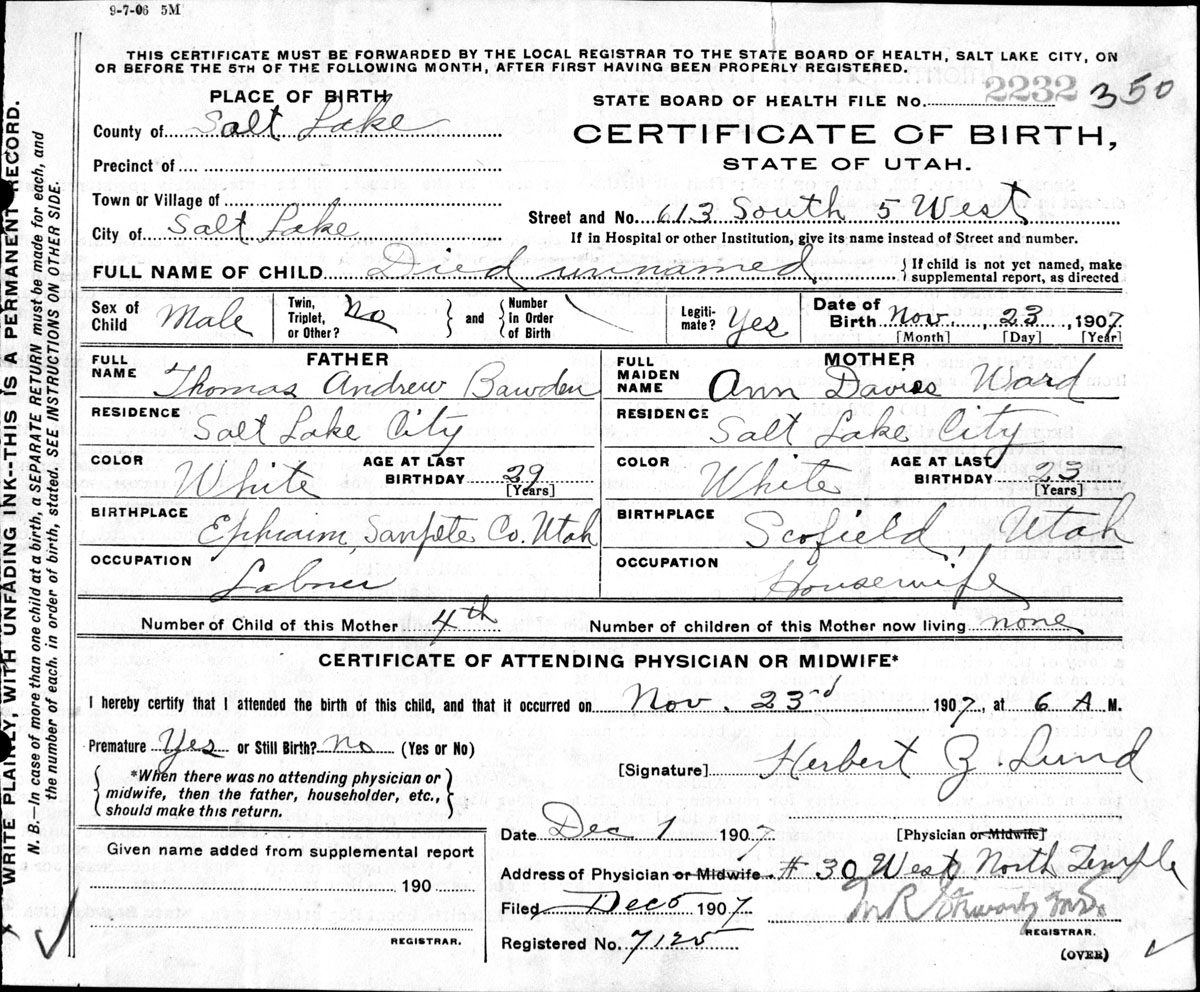 9-7-06 5M
THIS CERTIFICATE MUST BE FORWARDED BY THE LOCAL REGISTRAR TO THE STATE BOARD OF HEALTH, SALT LAKE CITY, ON
OR BEFORE THE 5TH OF THE FOLLOWING MONTH, AFTER FIRST HAVING BEEN PROPERLY REGISTERED.
WRITE PLAINLY, WITH UNFADING INK--THIS IS A PERMANENT RECORD.
N. B.—In case of more than one child at a birth, a SEPARATE RETURN must be made for each, and
the number of each, in order of birth, stated. SEE INSTRUCTIONS ON OTHER SIDE.
PLACE OF BIRTH
County of Salt Lake
Precinct of
Town or Village of
City of Salt Lake
STATE BOARD OF HEALTH FILE No. 2232 350
CERTIFICATE OF BIRTH,
STATE OF UTAH.
Street and No. 613 South 5 West
If in Hospital or other Institution, give its name instead of Street and number.
FULL NAME OF CHILD Died unnamed { If child is not yet named, make
supplemental report, as directed
Sex of Child Male
Twin, Triplet, or Other? No } and { Number in Order of Birth
Legiti-mate? Yes
Date of Birth Nov 23, 1907
[Month] [Day] [Year]
FATHER
FULL NAME Thomas Andrew Bawden
RESIDENCE Salt Lake City
COLOR White AGE AT LAST BIRTHDAY 29 [Years]
BIRTHPLACE Ephraim, Sanpete Co. Utah
OCCUPATION Laborer
MOTHER
FULL MAIDEN NAME Ann Davies Ward
RESIDENCE Salt Lake City
COLOR White AGE AT LAST BIRTHDAY 23 [Years]
BIRTHPLACE Scofield, Utah
OCCUPATION Housewife
Number of Child of this Mother 4th Number of children of this Mother now living none
CERTIFICATE OF ATTENDING PHYSICIAN OR MIDWIFE*
I hereby certify that I attended the birth of this child, and that it occurred on Nov. 23rd 1907, at 6 A M.
Premature Yes or Still Birth? No (Yes or No)
{ *When there was no attending physician or
midwife, then the father, householder, etc.,
should make this return. }
[Signature] Herbert Z. Lund
Date Dec 1 1907 [Physician or Midwife]
Address of Physician or Midwife # 30 West North Temple
Given name added from supplemental report
190
REGISTRAR.
Filed Dec 5 1907
REGISTRAR.
Registered No. 7125
(OVER)